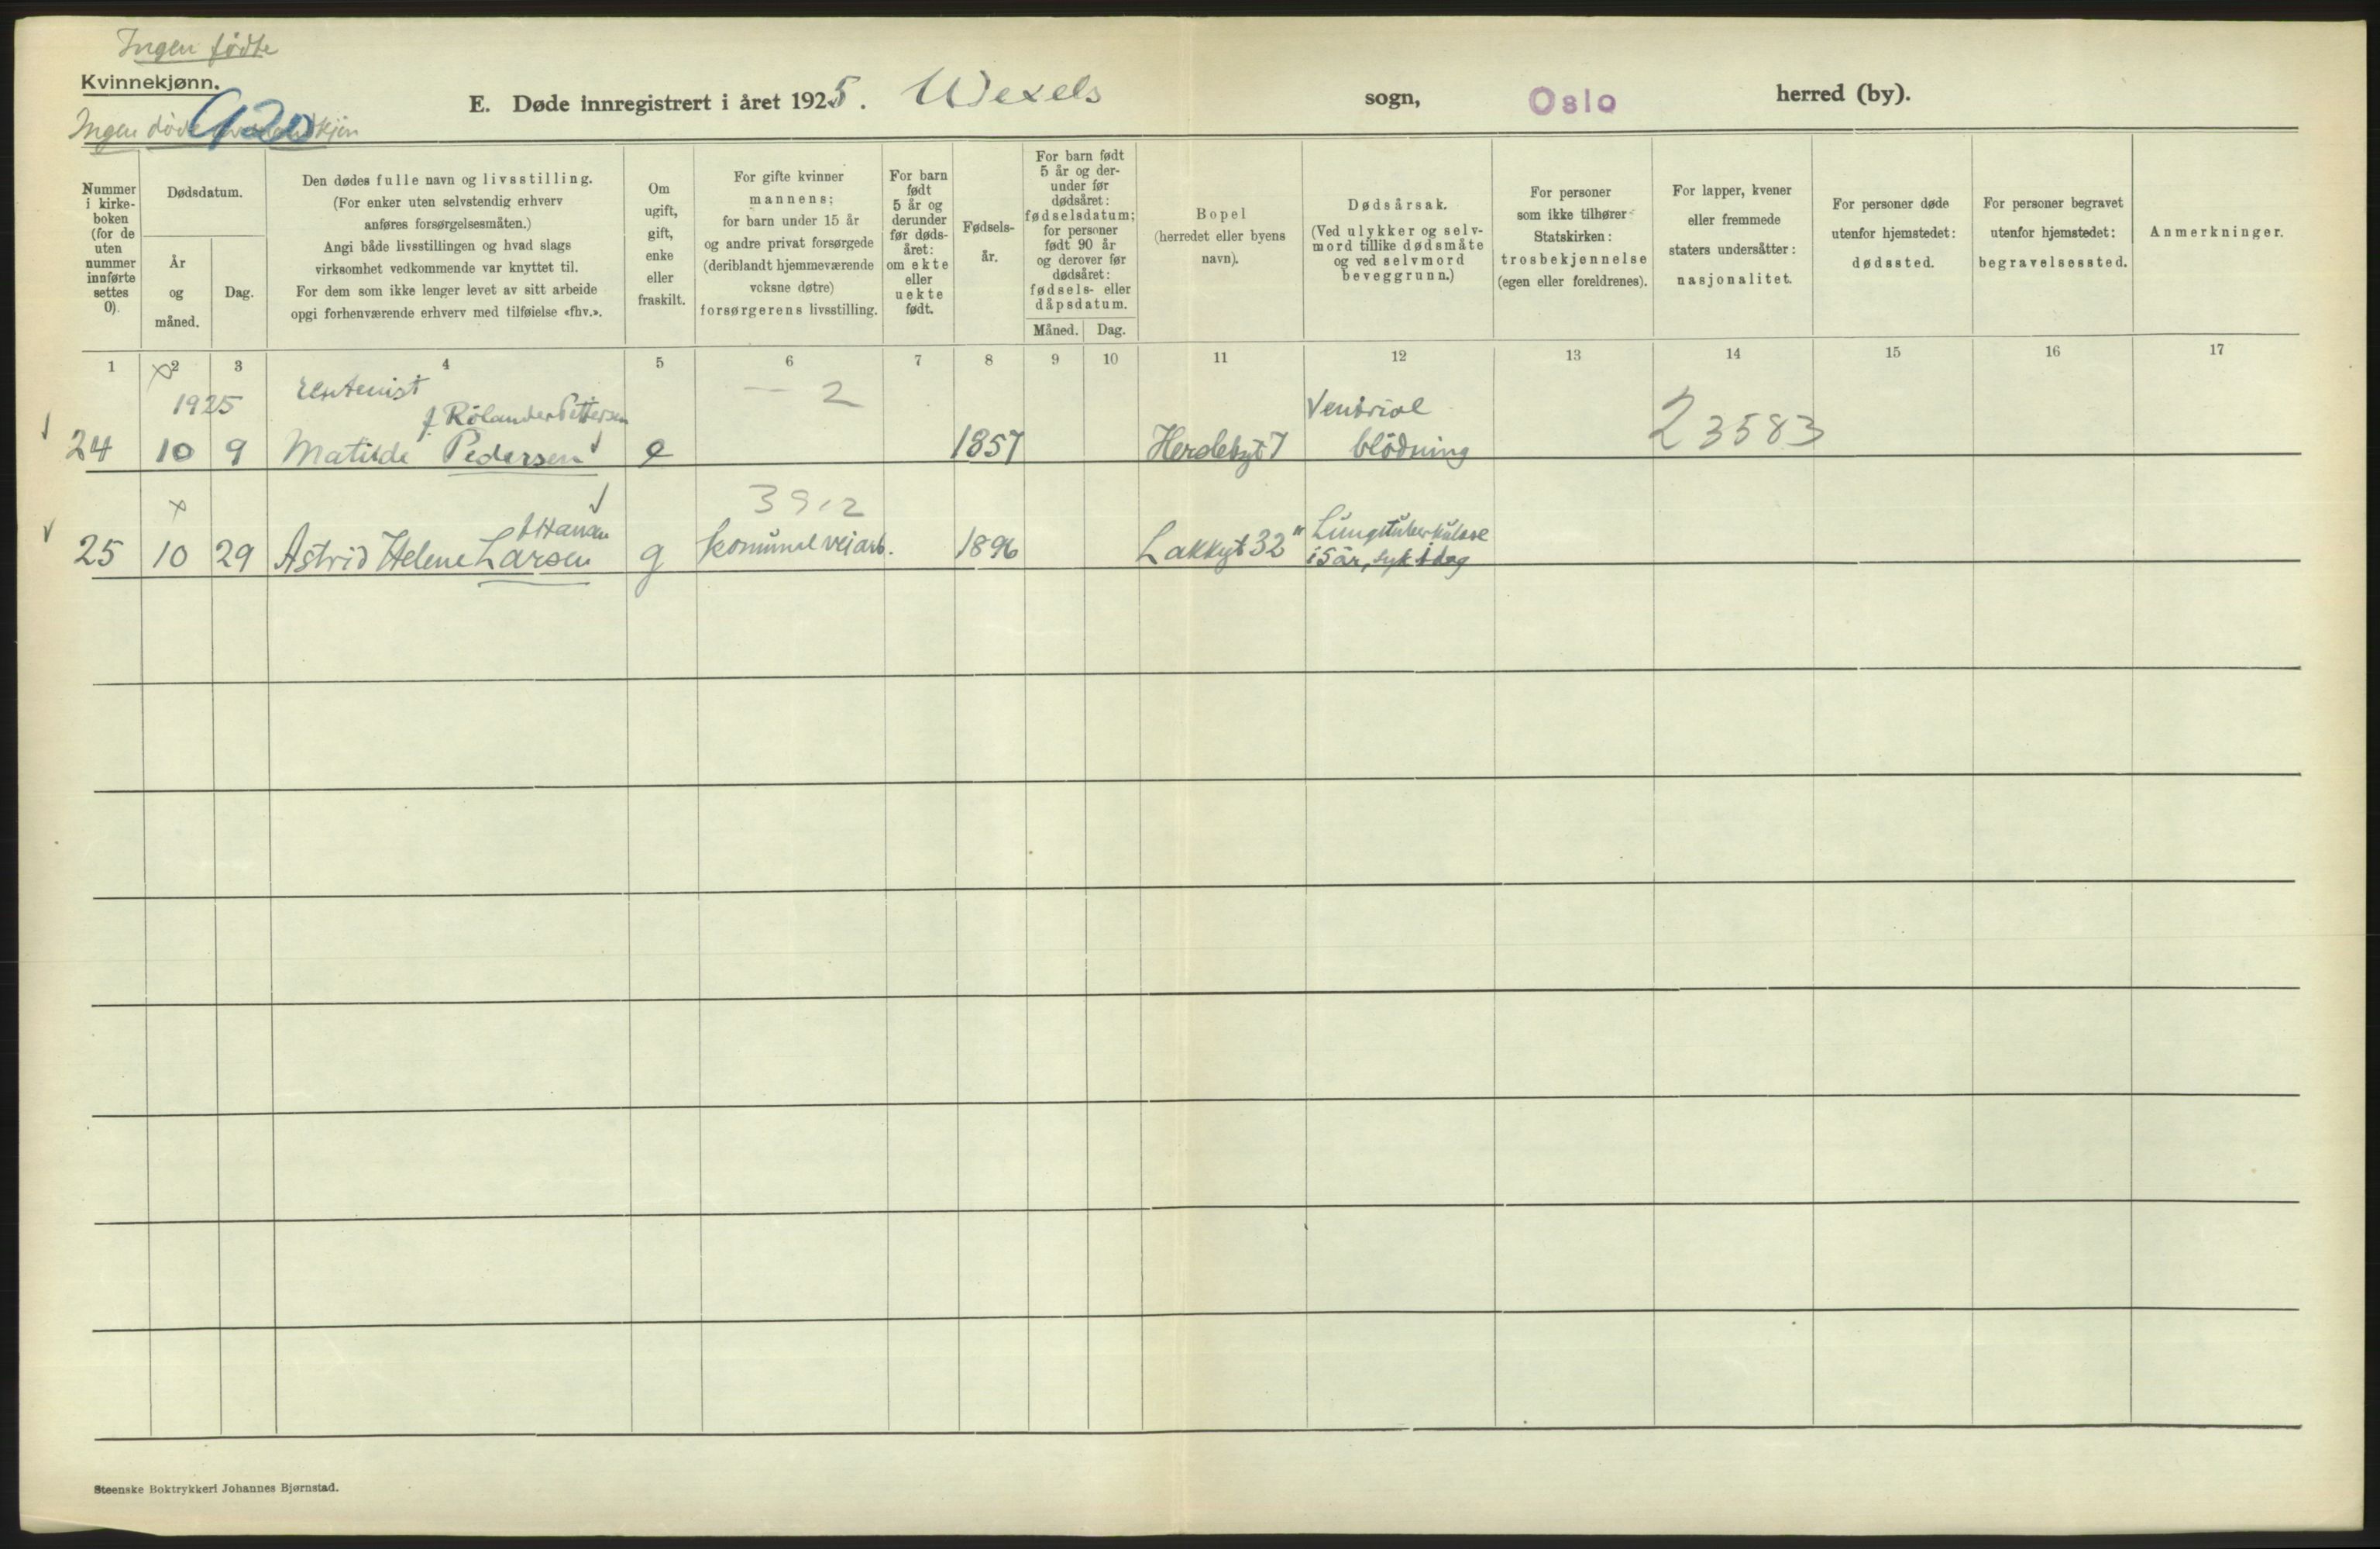 Ingen fødte
Kvinnekjønn.
Ingen døde
920
E. Døde innregistrert i året 1925. Wexels sogn, Oslo herred (by).
Nummer i kirke- boken (for de uten nummer innførte settes 0).
Dødsdatum.
År og måned.
Dag.
Den dødes fulle navn og livsstilling.
(For enker uten selvstendig erhverv
anføres forsørgelsesmåten.)
Angi både livsstillingen og hvad slags
virksomhet vedkommende var knyttet til.
For dem som ikke lenger levet av sitt arbeide
opgi forhenværende erhverv med tilføielse «fhv.».
Om ugift, gift, enke eller fraskilt.
For gifte kvinner
mannens;
for barn under 15 år
og andre privat forsørgede
(deriblandt hjemmeværende
voksne døtre)
forsørgerens livsstilling.
For barn født 5 år og derunder før døds- året: om ekte eller uekte født.
Fødsels- år.
For barn født 5 år og der- under før dødsåret: fødselsdatum; for personer født 90 år og derover før dødsåret: fødsels- eller dåpsdatum.
Måned. Dag.
Bopel
(herredet eller byens
navn).
Dødsårsak.
(Ved ulykker og selv-
mord tillike dødsmåte
og ved selvmord
beveggrunn.)
For personer
som ikke tilhører
Statskirken:
trosbekjennelse
(egen eller foreldrenes).
For lapper, kvener
eller fremmede
staters undersåtter:
nasjonalitet.
For personer døde
utenfor hjemstedet:
dødssted.
For personer begravet
utenfor hjemstedet:
begravelsessted.
Anmerkninger.
1 2 3 4 5 6 7 8 9 10 11 12 13 14 15 16 17
1925 rentenist — 2 Ventriol
f. Rolander Pettersen
24 10 9 Matilde Pedersen e 1857 blödning 23583
3912
f Hansen Lungetuberkulose
25 10 29 Astrid Helene Larsen g komunal veiarb. 1896 Lakkgt 32 i 5 år, syk 1 dag
Steenske Boktrykkeri Johannes Bjørnstad.